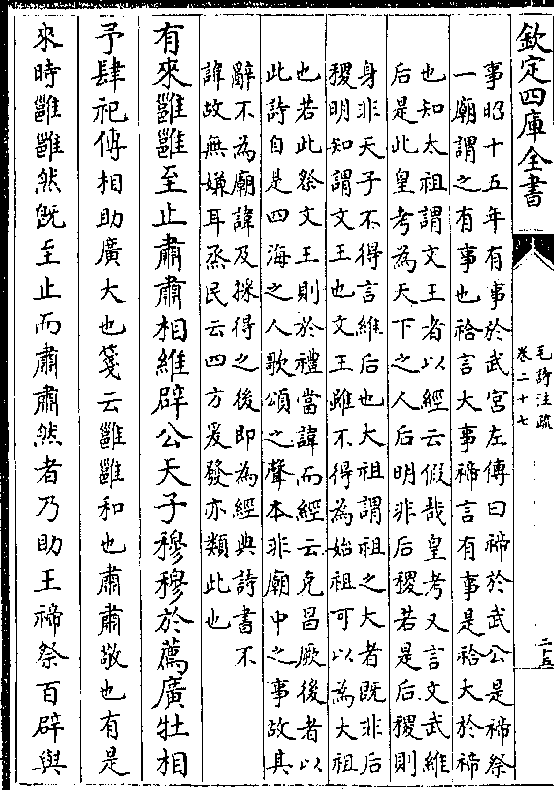 欽定四庫全書
毛詩注疏
卷二十七
二十五
事昭十五年有事於武宮左傳曰禘於武公是禘祭
一廟謂之有事也祫言大事禘言有事是祫大於禘
也知太祖謂文王者以經云假哉皇考又言文武維
后是此皇考為天下之人后明非后稷若是后稷則
身非天子不得言維后也大祖謂祖之大者既非后
稷明知謂文王也文王雖不得為始祖可以為大祖
也若此祭文王則於禮當諱而經云克昌厥後者以
此詩自是四海之人歌頌之聲本非廟中之事故其
辭不為廟諱及採得之後即為經典詩書不
諱故無嫌耳烝民云四方爰發亦類此也
有來雝雝至止肅肅相維辟公天子穆穆於薦廣牡相
予肆祀傳相助廣大也箋云雝雝和也肅肅敬也有是
來時雝雝然既至止而肅肅然者乃助王禘祭百辟與